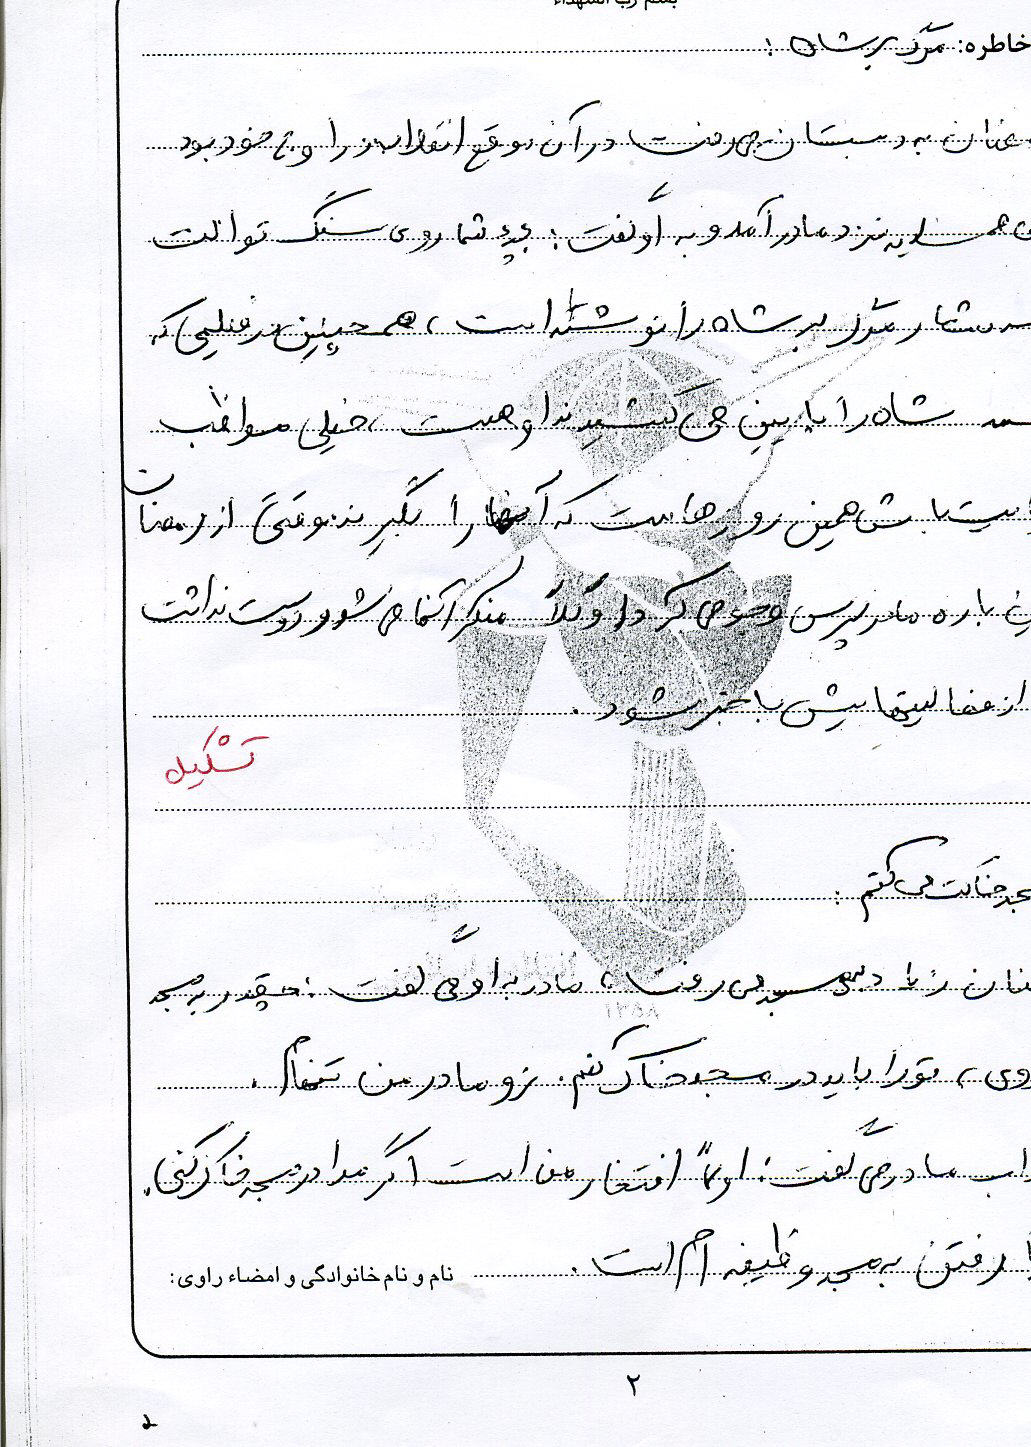 بسم رب الشهداء
خاطره: مرگ بر شاه :
به دبستان می رفت در آن موقع انقلاب در اوج خود بود
همسایه نزد مادر آمد و به او گفت: بچه شما روی سنگ توالت
شما مرگ بر شاه را نوشته است، همچنین در فیلمی که
شاه را پایین می کشیدند او هست، خیلی مواظب
باش همین روزهاست که آنها را بگیرند وقتی از رمضان
باره مادر پرس و جو می کرد او کلاً منکر آنها می شد و دوست نداشت
از فعالیتهایش با خبر شود.
تشکیل
می کنم :
زیاد به مسجد می رفت، مادر به او می گفت: چقدر به مسجد
روی، تو را باید در مسجد خاک کنم. تو مادر من
مادر می گفت: اولاً افتخار من است اگر مرا در مسجد خاک کنی.
رفتن به مسجد وظیفه ام است.
نام و نام خانوادگی و امضاء راوی:
۱۳۵۸
۲